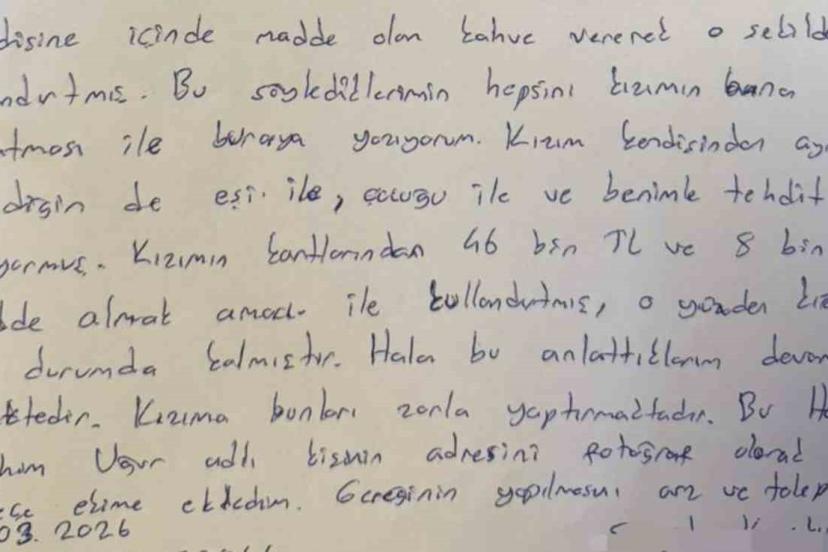 disine içinde madde olan kahve vererek o sekild
ndırtmış. Bu söylediklerimin hepsini kızımın bana
tması ile buraya yazıyorum. Kızım kendisinden ay
diğin de eşi ile, çocuğu ile ve benimle tehdit
yormuş. Kızımın kartlarından 46 bin TL ve 8 bin
lde almak amacı ile kullandırtmış, o yüzden
durumda kalmıştır. Hala bu anlattıklarım devam
ktedir. Kızıma bunları zorla yaptırmaktadır. Bu
Uğur adlı kişinin adresini fotoğraf olarak
ekime ekledim. Gereğinin yapılmasını arz ve talep
03.2026